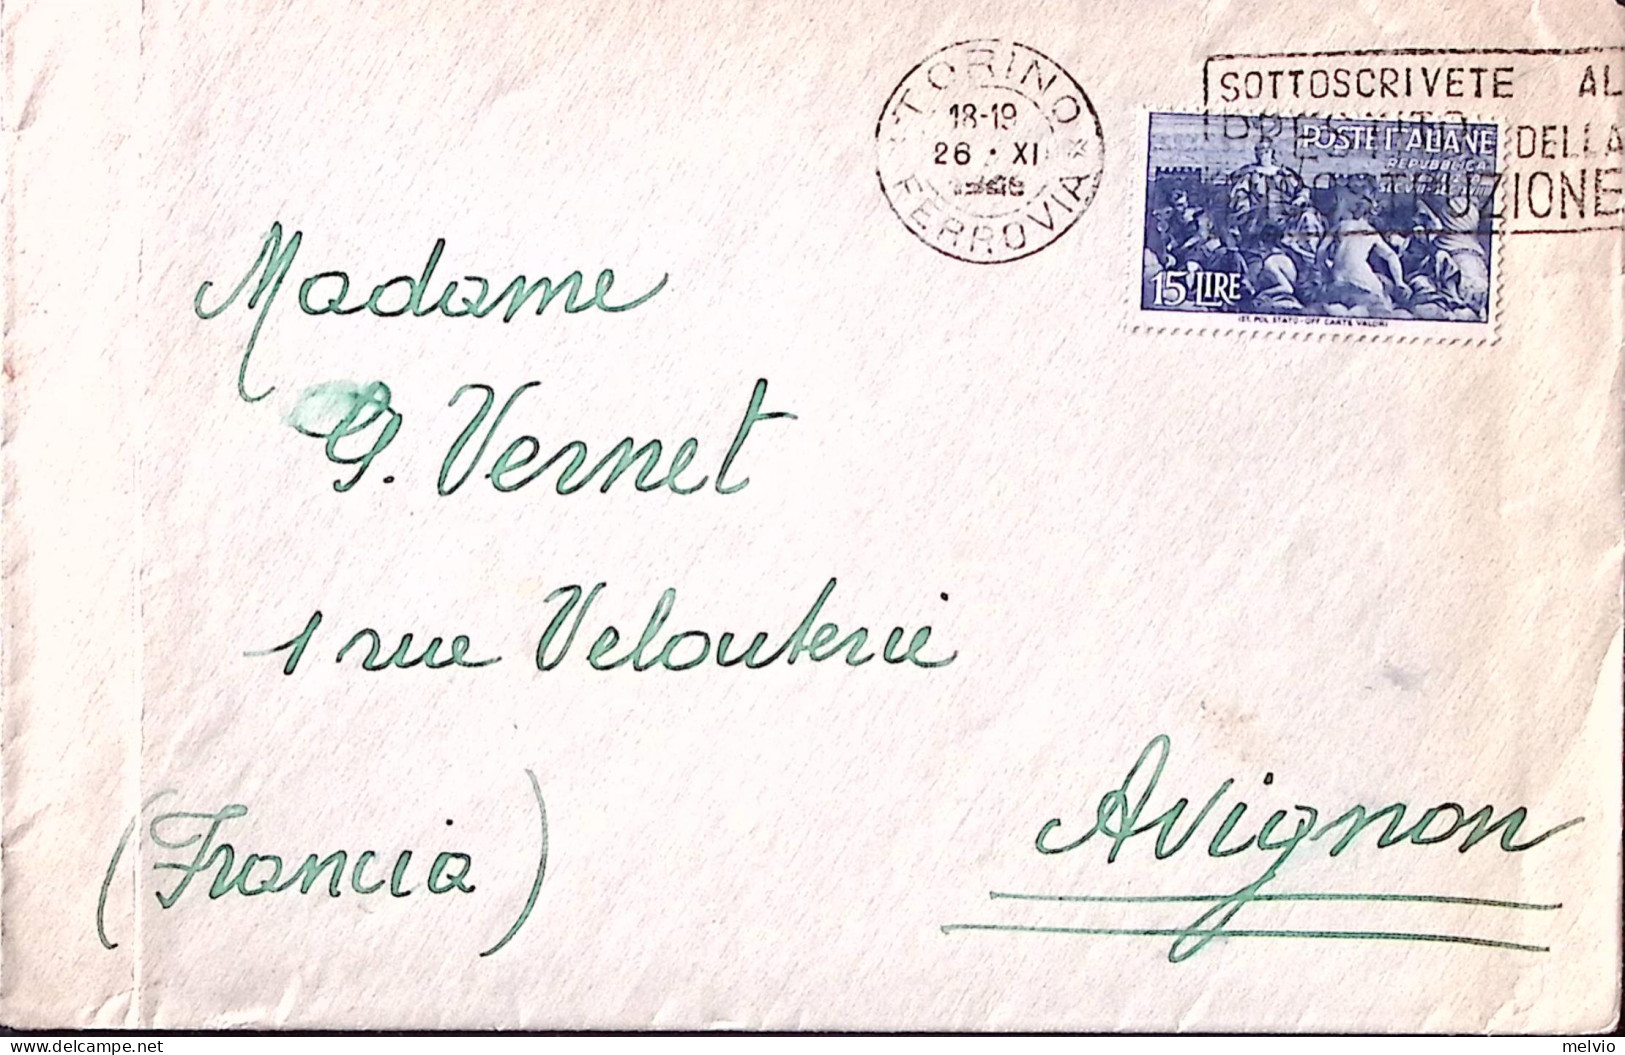 TORINO
18-19
26 · XI
1946
FERROVIA
SOTTOSCRIVETE AL
PRESTITO DELLA
RICOSTRUZIONE
POSTE ITALIANE
REPUBBLICA
15 LIRE
IST. POL. STATO - OFF. CARTE VALORI
Madame
G. Vernet
1 rue Velouterie
(Francia)
Avignon
melvio
© www.delcampe.net